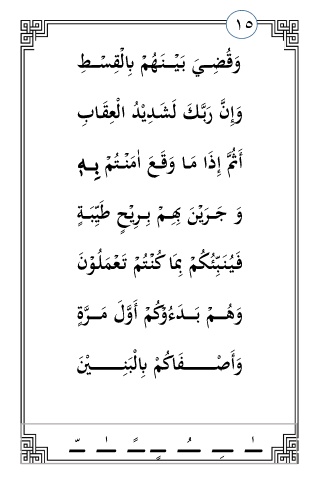 ١٥
وَقُضِيَ بَيْنَهُمْ بِالْقِسْطِ
وَإِنَّ رَبَّكَ لَشَدِيْدُ الْعِقَابِ
أَثُمَّ إِذَا مَا وَقَعَ اٰمَنْتُمْ بِهٖ
وَ جَرَيْنَ بِهِمْ بِرِيْحٍ طَيِّبَةٍ
فَيُنَبِّئُكُمْ بِمَا كُنْتُمْ تَعْمَلُوْنَ
وَهُمْ بَدَءُوْكُمْ أَوَّلَ مَرَّةٍ
وَأَصْفَاكُمْ بِالْبَنِيْنَ